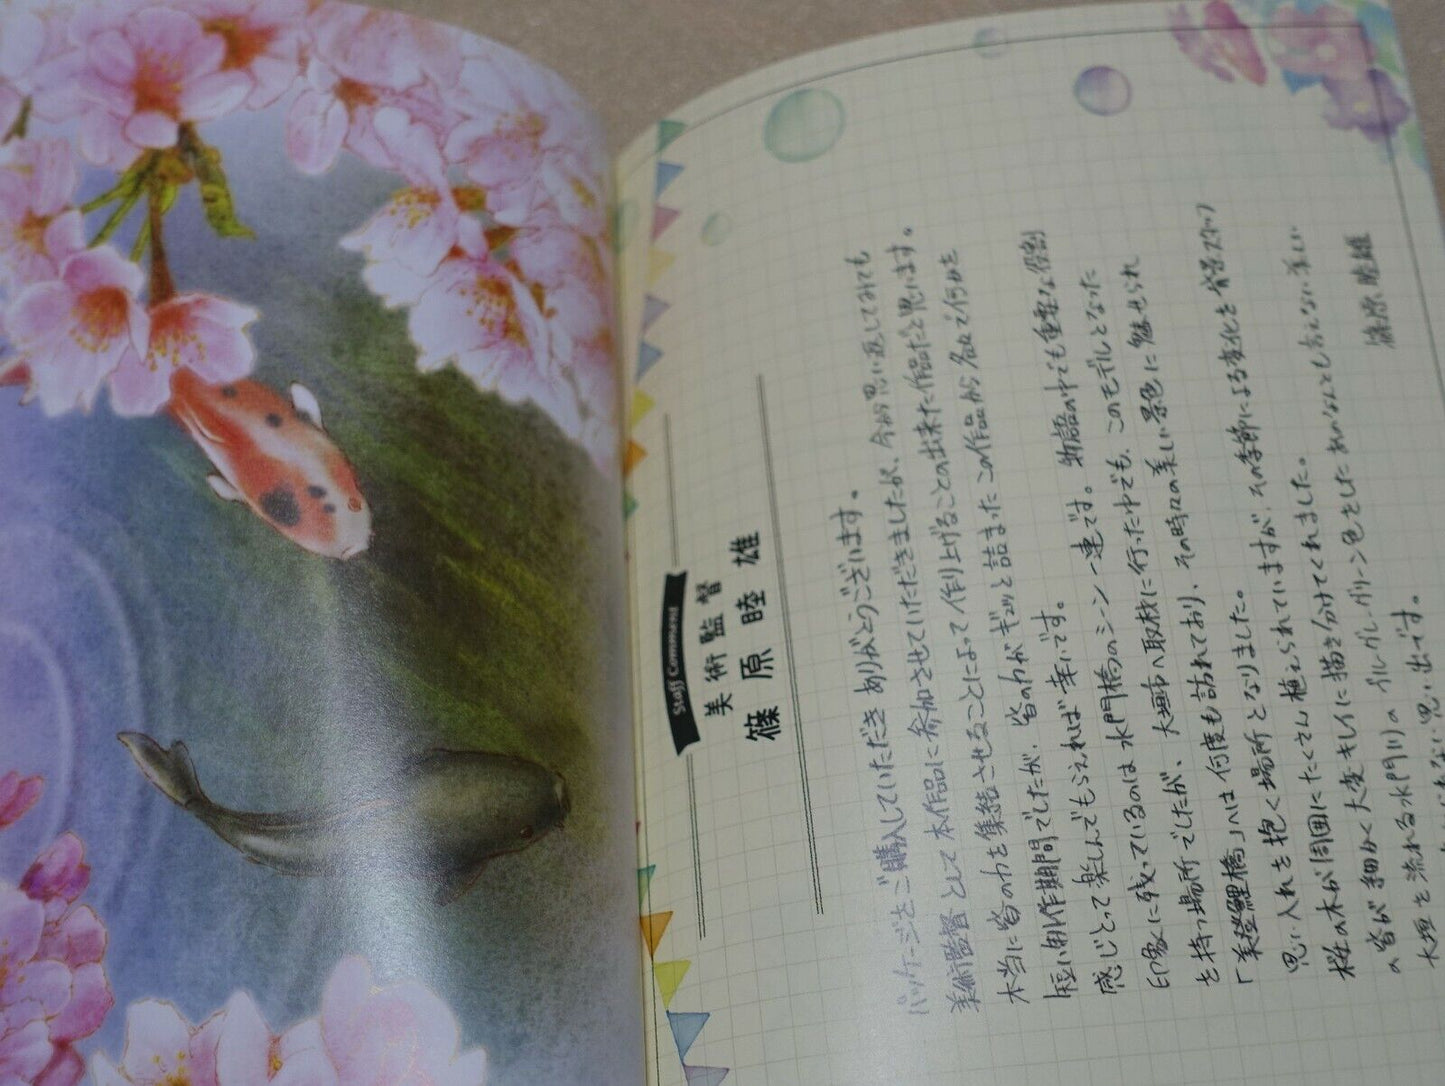 Staff Comment
美術監督
篠原睦雄
パッケージをご購入していただき ありがとうございます。
美術監督として本作品に参加させていただきましたが、今から思い返してみても
本当に皆の力を集結させることによって作り上げることの出来た作品だと思います。
短い制作期間でしたが、皆の力がギュッと詰まったこの作品から 改めて何かを
感じとって楽しんでもらえれば幸いです。
印象に残っているのは水門橋のシーン一連です。物語の中でも重要な役割
を持つ場所でしたが、大垣市へ取材に行った中でも、このモデルとなった
「美登鯉橋」へは何度も訪れており、その時々の美しい景色に魅せられ
思い入れを抱く場所となりました。
桜の木が周囲にたくさん植えられていますが、その季節による変化を背景スタッフ
の皆が細かく大変キレイに描き分けてくれました。
大垣を流れる水門川のブルーグレーグリーン色をしたあのなんとも言えない美しい
篠原 睦雄